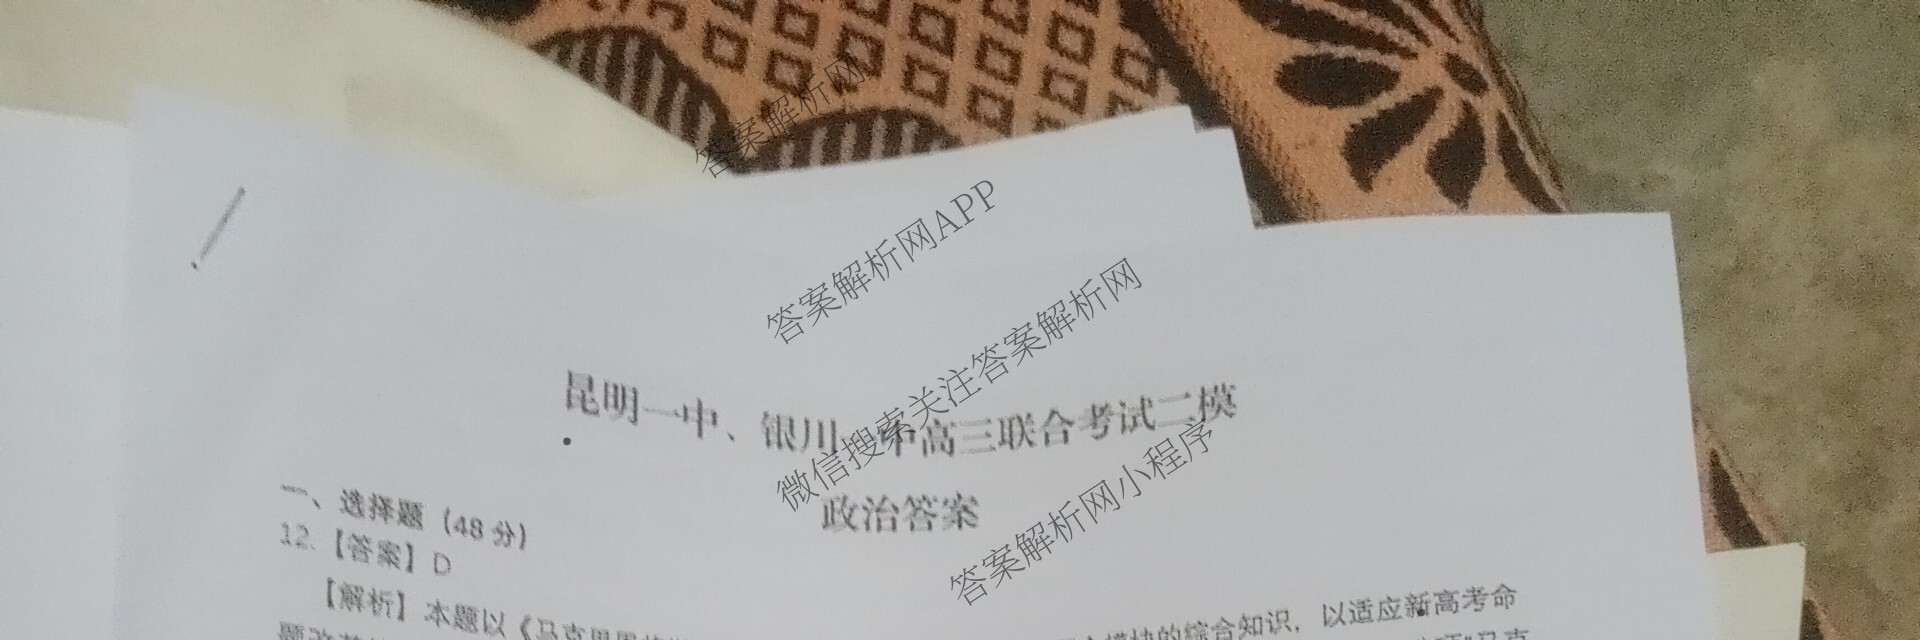 答案解析网
答案解析网APP
微信搜索关注答案解析网
答案解析网小程序
昆明一中、银川一中高三联合考试二模
政治答案
一、选择题（48分）
12.【答案】D
【解析】本题以《马克思恩格斯 模块的综合知识，以适应新高考命
题改革